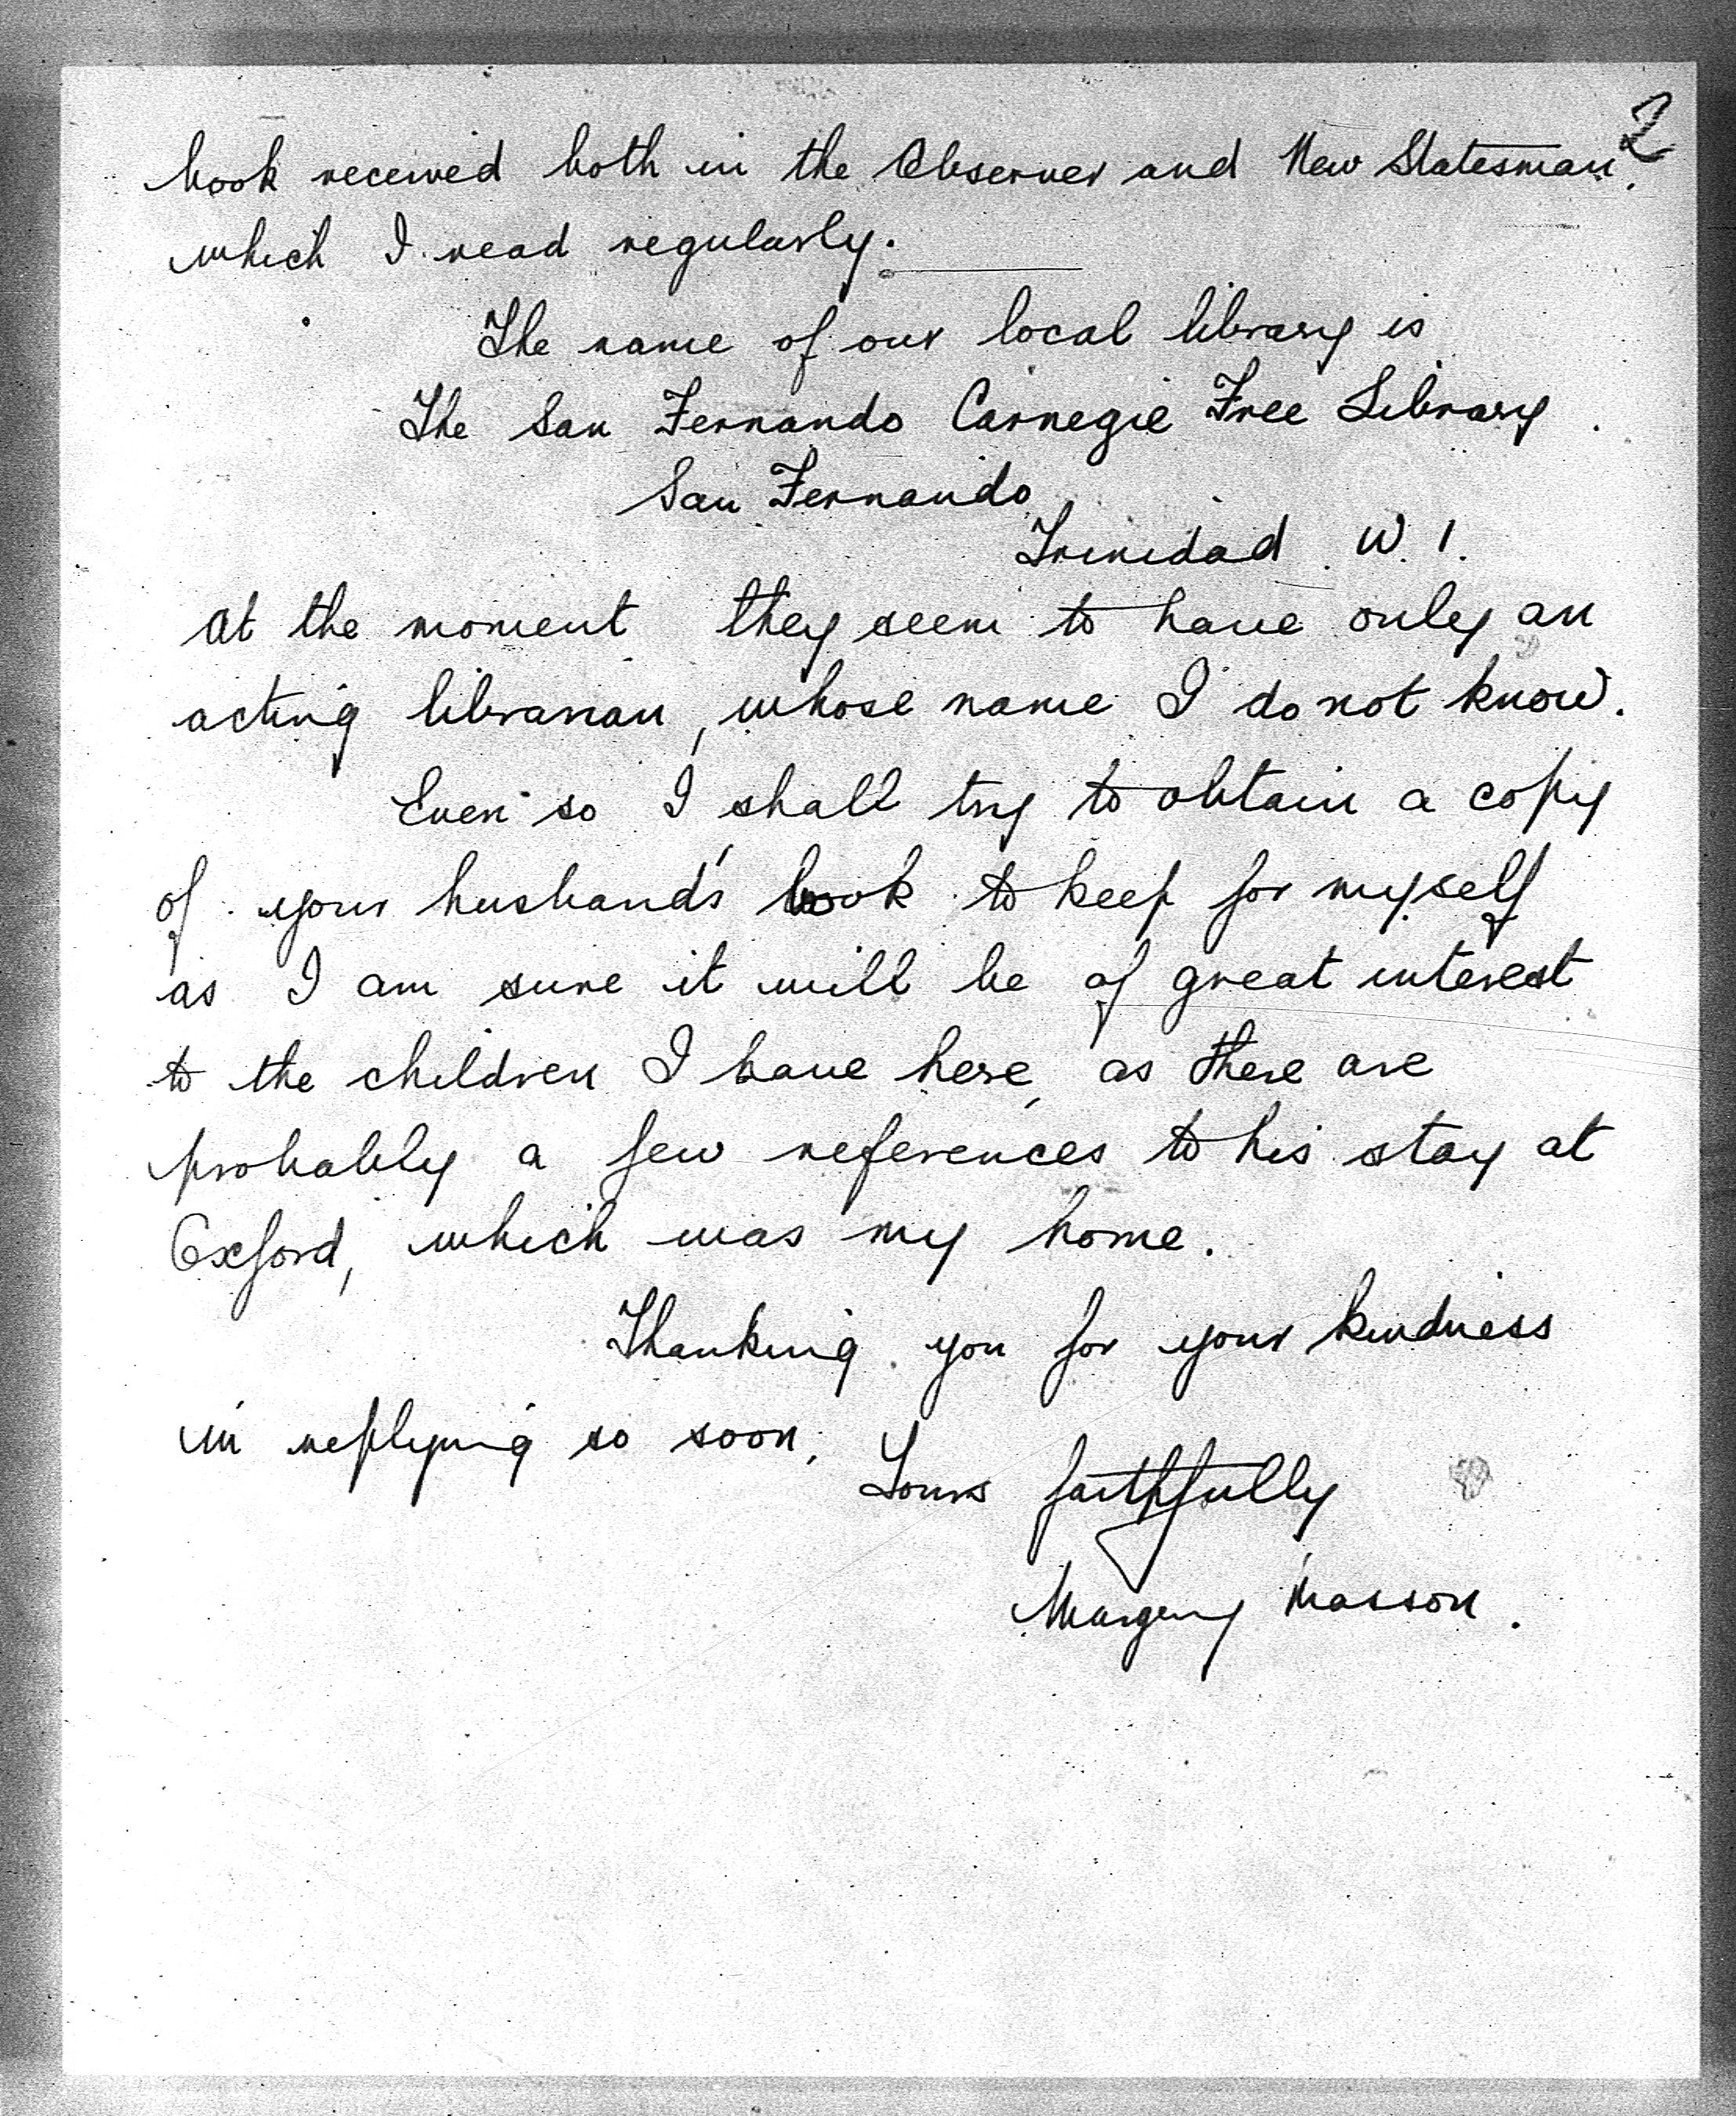 2
book received both in the Observer and New Statesman.
which I read regularly.
The name of our local library is
The San Fernando Carnegie Free Library
San Fernando
Trinidad. W. I.
At the moment they seem to have only an
acting librarian, whose name I do not know.
Even so I shall try to obtain a copy
of your husband's book to keep for myself
as I am sure it will be of great interest
to the children I have here, as there are
probably a few references to his stay at
Oxford, which was my home.
Thanking you for your kindness
in replying so soon,
Yours faithfully
Margery Masson.